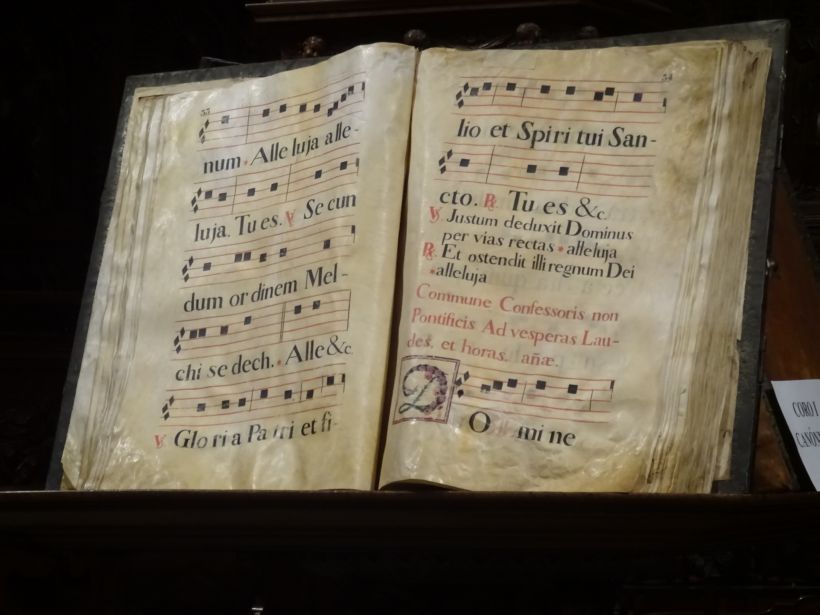 33
num. Alle luja alle-
luja. Tu es. ℣ Se cun
dum or dinem Mel-
chi se dech. * Alle &c.
℣ Glo ri a Pa tri et fi-
34
lio et Spiri tui San-
cto. ℟ Tu es &c.
℣ Justum deduxit Dominus
per vias rectas * alleluja
℟ Et ostendit illi regnum Dei
* alleluja
Commune Confessoris non
Pontificis Ad vesperas Lau-
des, et horas. añæ.
D
O mi ne
CORO